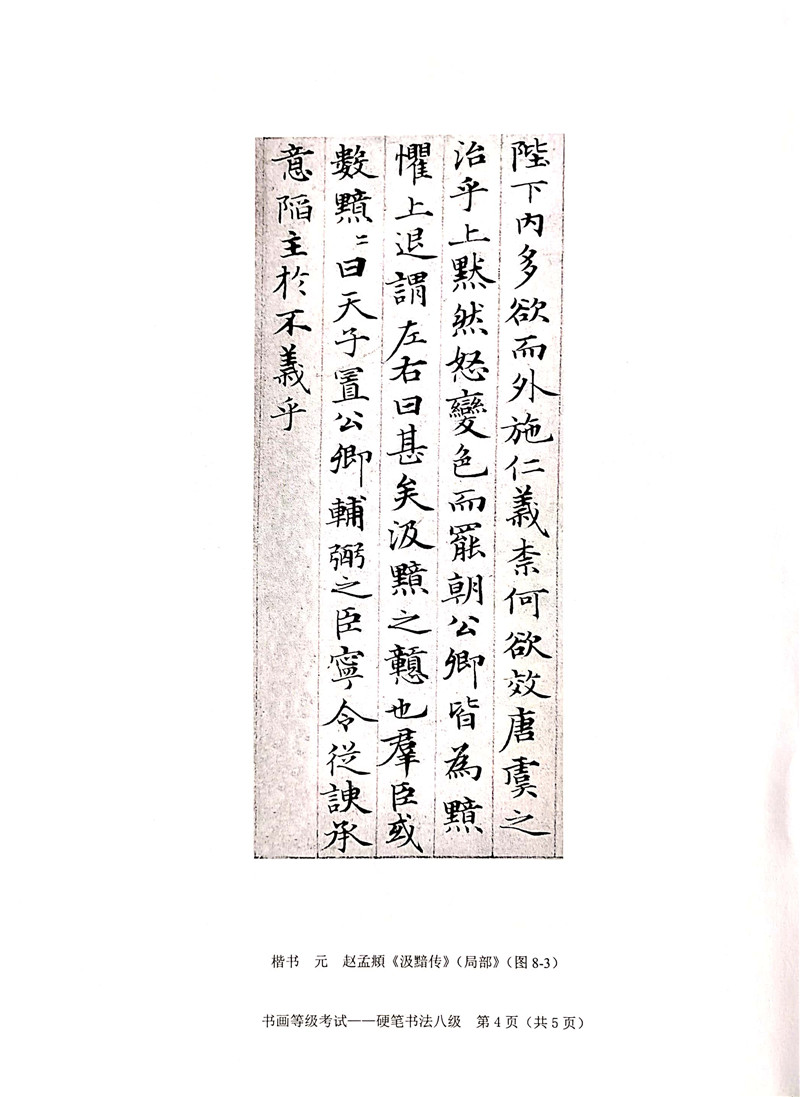 陛下内多欲而外施仁義柰何欲效唐虞之
治乎上默然怒變色而罷朝公卿皆為黯
懼上退謂左右曰甚矣汲黯之戇也羣臣或
數黯〻曰天子置公卿輔弼之臣寧令從諛承
意陷主於不義乎
楷书 元 赵孟頫《汲黯传》（局部》（图 8-3）
书画等级考试——硬笔书法八级 第 4 页（共 5 页）